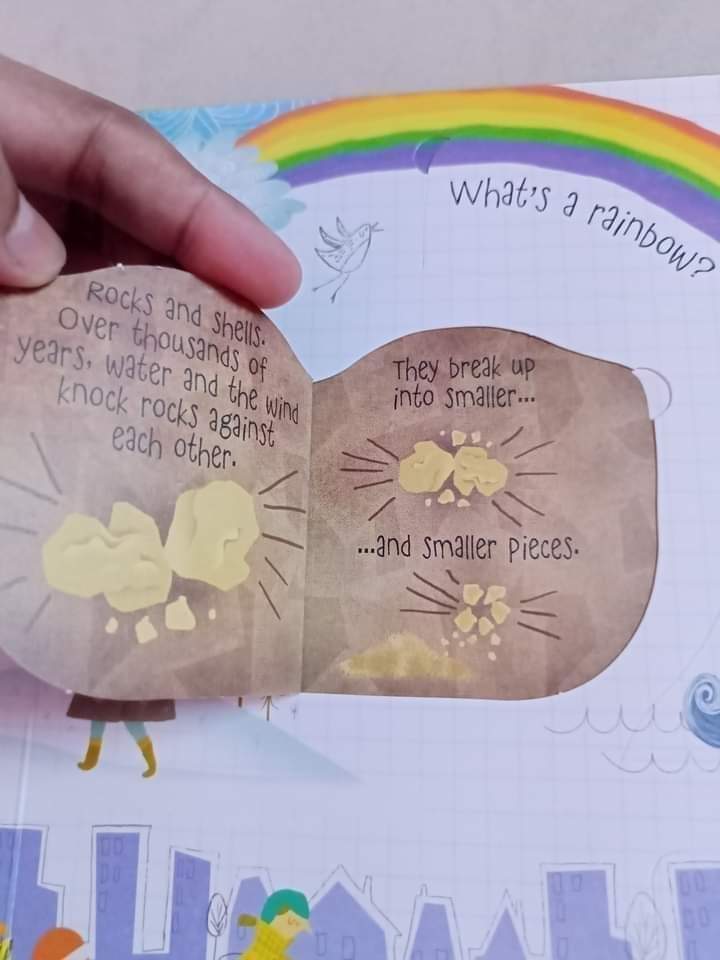 What's a rainbow?
Rocks and shells.
Over thousands of
years, water and the wind
knock rocks against
each other.
They break up
into smaller...
...and smaller pieces.